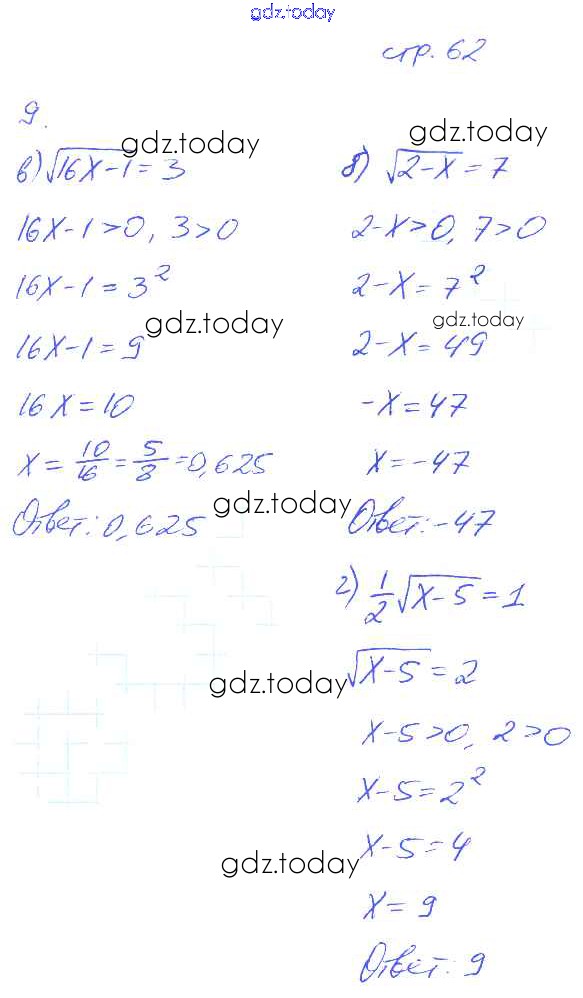 gdz.today
стр. 62
9.
в) √16x-1 = 3
gdz.today
16x-1>0, 3>0
16x-1=3²
16x-1=9
gdz.today
16x=10
x=10/16=5/8=0,625
Ответ: 0,625
gdz.today
б) √2-x = 7
gdz.today
2-x>0, 7>0
2-x=7²
gdz.today
2-x=49
-x=47
x=-47
Ответ: -47
г) 1/2√x-5=1
√x-5=2
gdz.today
x-5>0, 2>0
x-5=2²
x-5=4
gdz.today
x=9
Ответ: 9